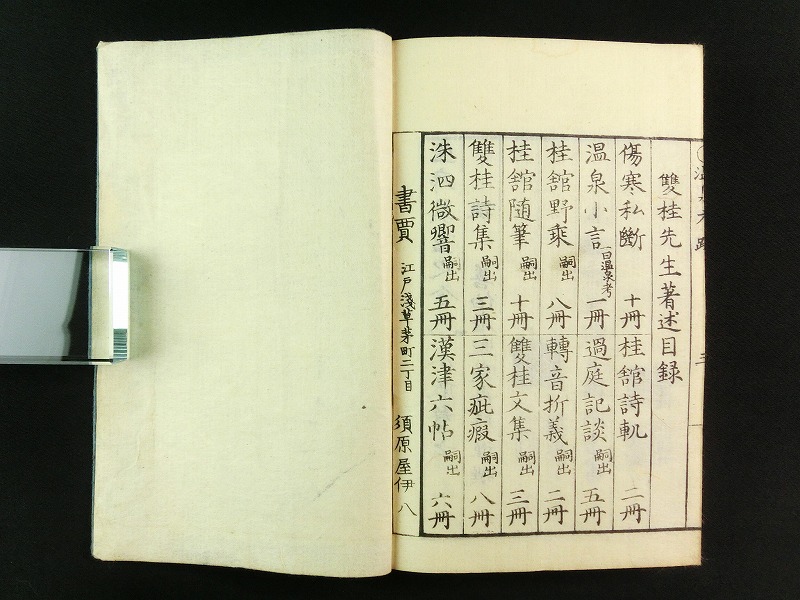 雙桂先生著述目録
傷寒私斷 十冊 桂舘詩軌 二冊
温泉小言 一曰温泉考 一冊 過庭記談 嗣出 五冊
桂舘野乘 嗣出 八冊 轉音折義 嗣出 二冊
桂舘随筆 嗣出 十冊 雙桂文集 嗣出 三冊
雙桂詩集 嗣出 三冊 三家疵瑕 嗣出 八冊
洙泗微響 嗣出 五冊 漢津六帖 嗣出 六冊
書賈 江戸淺草茅町二丁目 須原屋伊八